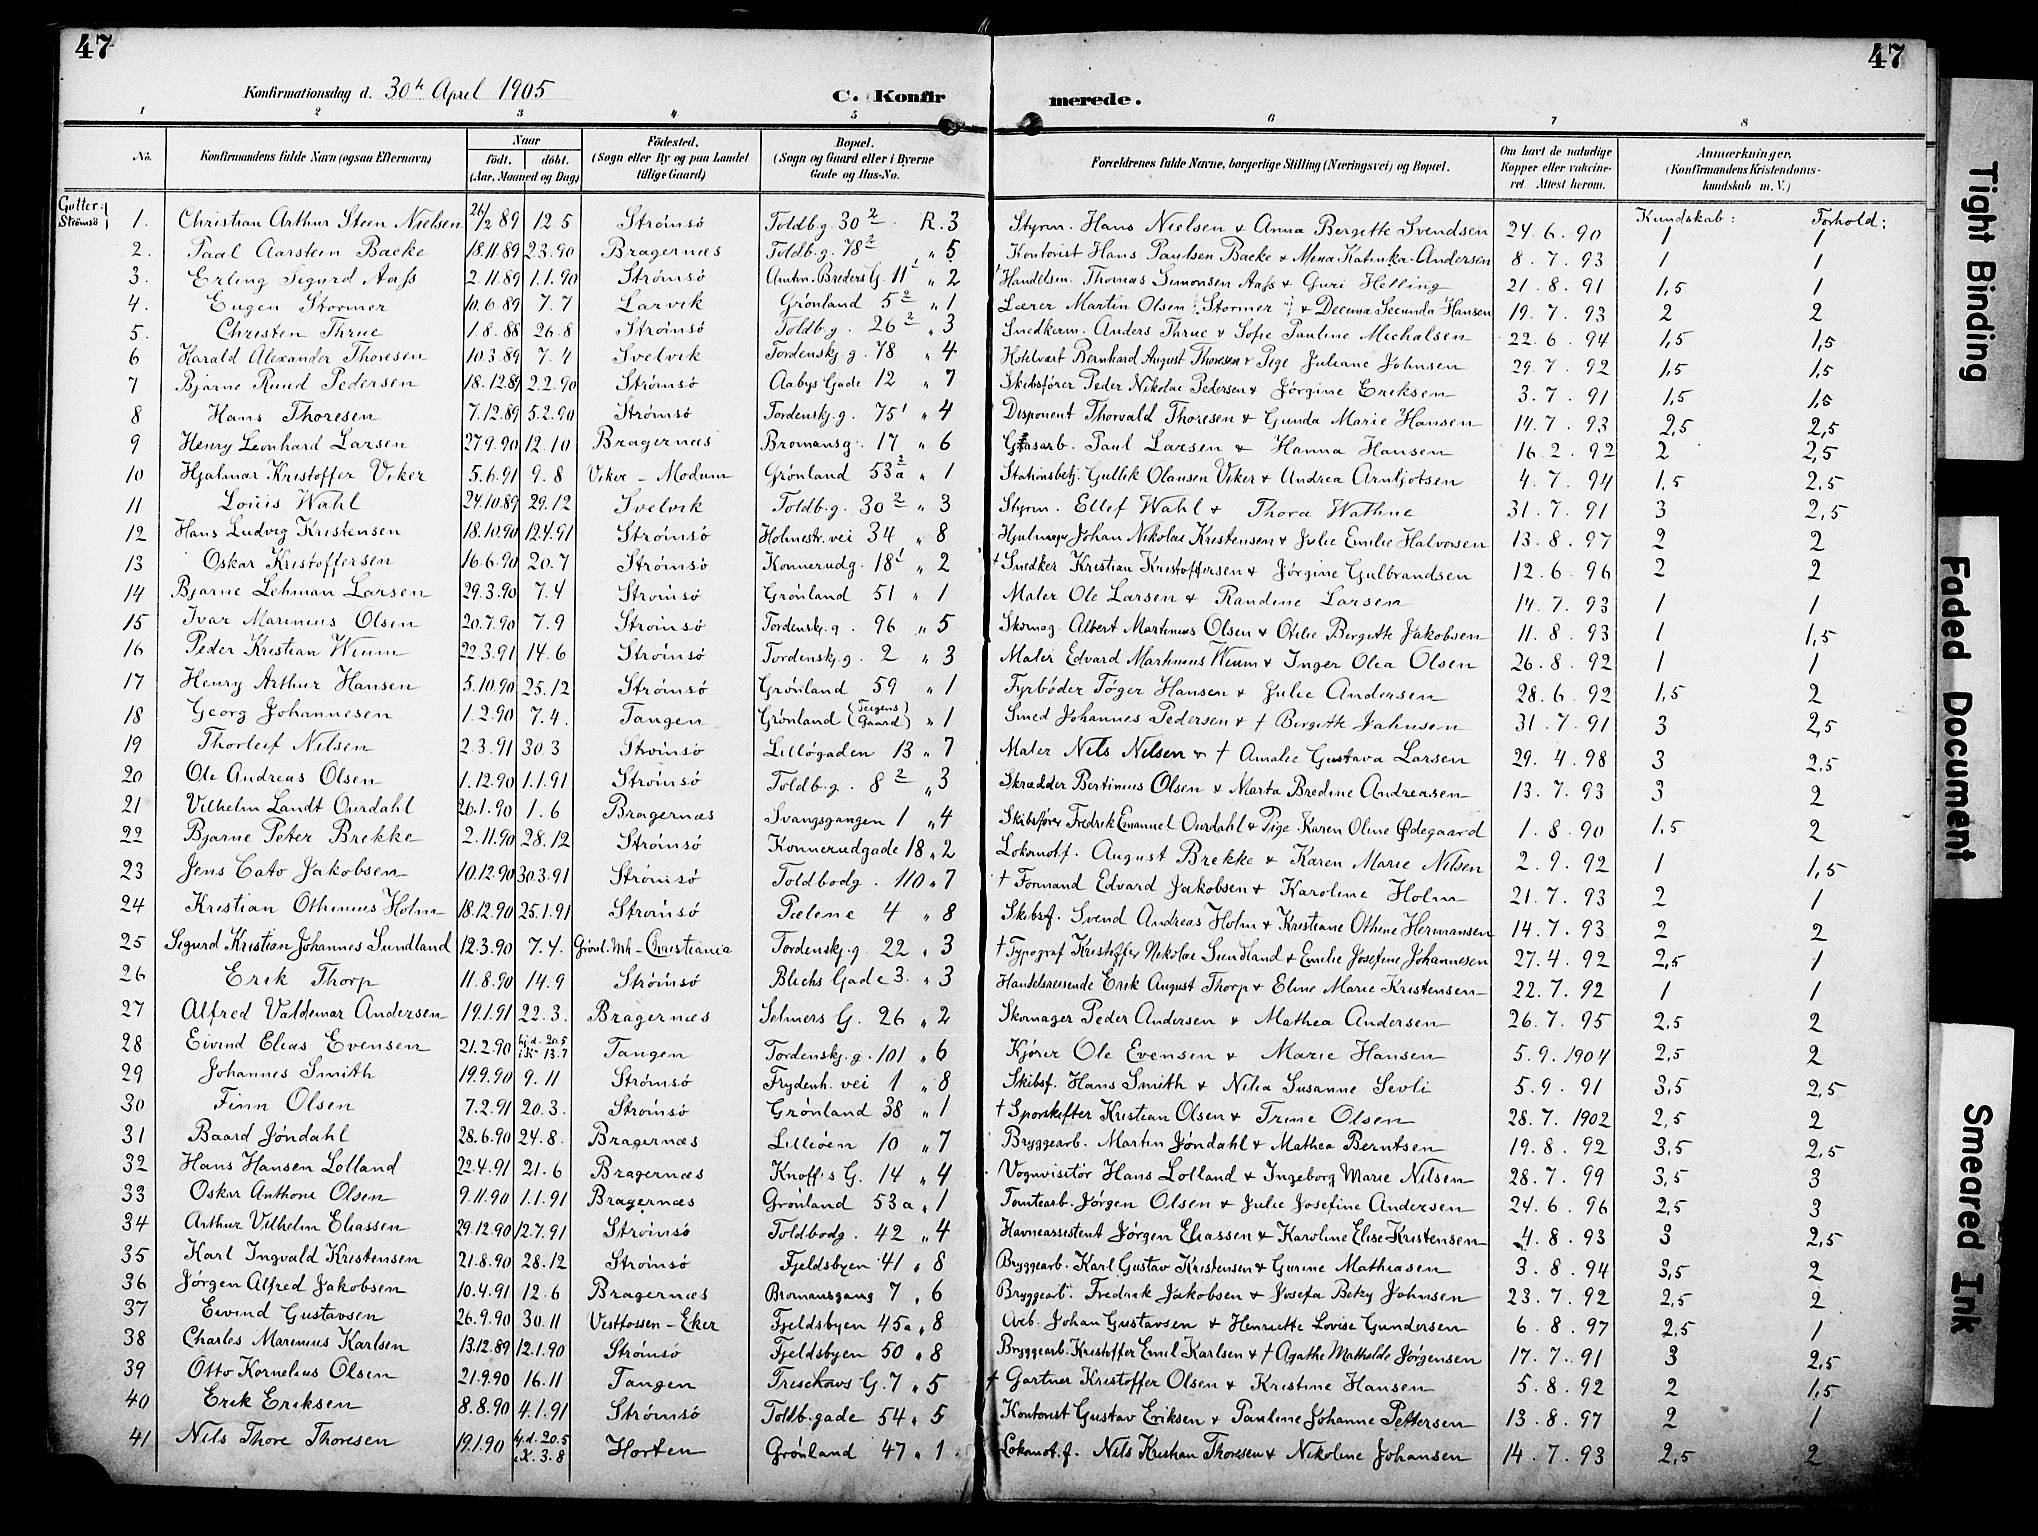 47
47
Konfirmationsdag d. 30te April 1905
C. Konfirmerede.
1 2 3 4 5 6 7 8
No. Konfirmandens fulde Navn (ogsaa Efternavn) Naar födt. döbt. (Aar, Maaned og Dag) Födested. (Sogn eller By og paa Landet tillige Gaard) Bopæl. (Sogn og Gaard eller i Byerne Gade og Hus-No. Forældrenes fulde Navne, borgerlige Stilling (Næringsvei) og Bopæl. Om havt de naturlige Kopper eller vakcineret. Attest herom. Anmærkninger. (Konfirmandens Kristendomskundskab m. V.)
Gutter: Strømsø Kundskab: Forhold:
1. Christian Arthur Steen Nielsen 26/2 89 12.5 Strømsø Toldb.g. 30 2 R. 3 Styrm. Hans Nielsen & Anna Bergitte Svendsen 24.6.90 1 1
2. Paal Aarstein Backe 18.11.89 23.90 Bragernæs Toldb.g. 78 2 " 5 Kontorist Hans Paulsen Backe & Mina Katinka Andersen 8.7.93 1 1
3. Erling Sigurd Aass 2.11.89 1.1.90 Strømsø Amtm. Breders G. 11 1 " 2 Handelsm. Thomas Simonsen Aass & Guri Helling 21.8.91 1,5 1
4. Eugen Stormer 10.6.89 7.7 Larvik Grønland 5 2 " 1 Lærer Martin Olsen (Stormer) & Decima Secunda Hansen 19.7.93 2 2
5. Christen Thrue 1.8.88 26.8 Strømsø Toldb.g. 26 2 " 3 Snedkerm. Anders Thrue & Sofie Pauline Michalsen 22.6.94 1,5 1,5
6 Harald Alexander Thoresen 10.3.89 7.4 Svelvik Tordenskj.g. 78 " 4 Hotelvært Bernhard August Thoresen & Pige Juliane Johnsen 29.7.92 1,5 1,5
7 Bjarne Ruud Pedersen 18.12.89 22.90 Strømsø Aabys Gade 12 " 7 Skibsfører Peder Nikolai Pedersen & Jørgine Eriksen 3.7.91 1,5 1,5
8 Hans Thoresen 7.12.89 5.2.90 Strømsø Tordenskj.g. 75 1 " 4 Disponent Thorvald Thoresen & Gunda Marie Hansen 14.7.93 2,5 2,5
9 Henry Leonhard Larsen 27.9.90 12.10 Bragernæs Bromansg. 17 " 6 Gasarb. Paul Larsen & Hanna Hansen 16.2.92 2 2,5
10 Hjalmar Kristoffer Viker 5.6.91 9.8 Viker - Modum Grønland 53a 2 " 1 Stationsbetj. Gullik Olausen Viker & Andrea Arntjotsen 4.7.94 1,5 2,5
11 Louis Wahl 24.10.89 29.12 Svelvik Toldb.g. 30 2 " 3 Styrm. Ellef Wahl & Thora Wathne 31.7.91 3 2,5
12 Hans Ludvig Kristensen 18.10.90 12.4.91 Strømsø Holmestr. vei 34 " 8 Hjulmager Johan Nikolai Kristensen & Julie Emilie Halvorsen 13.8.97 2 2
13 Oskar Kristoffersen 16.6.90 20.7 Strømsø Konnerudg. 18 1 " 2 + Snedker Kristian Kristoffersen & Jørgine Gulbrandsen 12.6.96 2 2
14 Bjarne Lehman Larsen 29.3.90 7.4 Strømsø Grønland 51 " 1 Maler Ole Larsen & Randine Larsen 14.7.93 1 1
15 Ivar Marinius Olsen 20.7.90 7.9 Strømsø Tordenskj.g. 96 " 5 Skomag. Albert Martinius Olsen & Otilie Bergitte Jakobsen 11.8.93 1 1,5
16 Peder Kristian Wium 22.3.91 14.6 Strømsø Tordenskj.g. 2 " 3 Maler Edvard Martinius Wium & Inger Olea Olsen 26.8.92 1 1
17 Henry Arthur Hansen 5.10.90 25.12 Strømsø Grønland 59 " 1 Fyrbøder Tøger Hansen & Julie Andersen 28.6.92 1,5 2
18 Georg Johannesen 1.2.90 7.4. Tangen Grønland (Teigens Gaard) " 1 Smed Johannes Pedersen & + Bergitte Jahnsen 31.7.91 3 2,5
19 Thorleif Nilsen 2.3.91 30.3 Strømsø Lilløgaden 13 " 7 Maler Nils Nilsen & + Amalie Gustava Larsen 29.4.98 3 2,5
20 Ole Andreas Olsen 1.12.90 1.1.91 Strømsø Toldb.g. 8 2 " 3 Skrædder Bertinius Olsen & Marta Bredine Andreasen 13.7.93 3 2
21 Vilhelm Landt Ourdahl 26.1.90 1.6 Bragernæs Svangsgangen 1 " 4 Skibsfører Fredrik Emanuel Ourdahl & Pige Karen Oline Ødegaard 1.8.90 1,5 2
22 Bjarne Peter Brekke 2.11.90 28.12 Strømsø Konnerudgade 18 " 2 Lokomotf. August Brekke & Karen Marie Nilsen 2.9.92 1 1,5
23 Jens Cato Jakobsen 10.12.90 30.3.91 Strømsø Toldbodg. 110 " 7 + Formand Edvard Jakobsen & Karoline Holm 21.7.93 2 1
24 Kristian Othinius Holm 18.12.90 25.1.91 Strømsø Pælene 4 " 8 Skibsf. Svend Andreas Holm & Kristiane Othine Hermansen 14.7.93 2 2
25 Sigurd Kristian Johannes Sundland 12.3.90 7.4. Grønl. Mh - Christiania Tordenskj.g. 22 " 3 + Typograf Kristoffer Nikolai Sundland & Emilie Josefine Johannesen 27.4.92 2,5 1
26 Erik Thorp 11.8.90 14.9 Strømsø Blichs Gade 3. " 3 Handelsreisende Erik August Thorp & Eline Marie Kristensen 22.7.92 1 1
27 Alfred Valdemar Andersen 19.1.91 22.3. Bragernæs Selmers G. 26 " 2 Skomager Peder Andersen & Mathea Andersen 26.7.95 2,5 2
28 Eivind Elias Evensen 21.2.90 hj.d. 20.5 i K 13.7 Tangen Tordenskj.g. 101 " 6 Kjører Ole Evensen & Marie Hansen 5.9.1904 2,5 2
29 Johannes Smith 19.9.90 9.11 Strømsø Frydenh. vei 1 " 8 Skibsf. Hans Smith & Nilia Susanne Sevli 5.9.91 3,5 2,5
30 Finn Olsen 7.2.91 20.3. Strømsø Grønland 38 " 1 + Sporskifter Kristian Olsen & Trine Olsen 28.7.1902 2,5 2
31 Baard Jøndahl 28.6.90 24.8. Bragernæs Lilleøen 10 " 7 Bryggearb. Martin Jøndahl & Mathea Berntsen 19.8.92 3,5 2,5
32 Hans Hansen Lolland 22.4.91 21.6 Bragernæs Knoff's G. 14 " 4 Vognvisitør Hans Lolland & Ingeborg Marie Nilsen 28.7.99 3,5 3
33 Oskar Anthoni Olsen 9.11.90 1.1.91 Bragernæs Grønland 53a " 1 Tomtearb. Jørgen Olsen & Julie Josefine Andersen 24.6.96 2,5 3
34 Arthur Vilhelm Eliassen 29.12.90 12.7.91 Strømsø Toldbodg. 42 " 4 Havneassistent Jørgen Eliassen & Karoline Elise Kristensen 4.8.93 3 2,5
35 Karl Ingvald Kristensen 21.8.90 28.12 Strømsø Fjeldsbyen 41 " 8 Bryggearb. Karl Gustav Kristensen & Gurine Mathiasen 3.8.94 3,5 2
36 Jørgen Alfred Jakobsen 10.4.91 12.6 Bragernæs Bromansgang 7 " 6 Bryggearb. Fredrik Jakobsen & Josefa Betzy Johnsen 23.7.92 2,5 2
37 Eivind Gustavsen 26.9.90 30.11 Vestfossen - Eker Fjeldsbyen 45a " 8 Arb. Johan Gustavsen & Henriette Lovise Gundersen 6.8.97 2,5 1
38 Charles Marinius Karlsen 13.12.89 12.1.90 Strømsø Fjeldsbyen 50 " 8 Bryggearb. Kristoffer Emil Karlsen & + Agathe Mathilde Jørgensen 17.7.91 3 2,5
39 Otto Kornelius Olsen 21.9.90 16.11 Tangen Treschows G. 7 " 5 + Gartner Kristoffer Olsen & Kristine Hansen 5.8.92 2 1,5
40 Erik Eriksen 8.8.90 4.1.91 Strømsø Toldb.gade 54 " 5 Kontorist Gustav Eriksen & Pauline Johanne Pettersen 13.8.97 2 1
41 Nils Thore Thoresen 19.1.90 hj.d. 20.5 i K. 3.8 Horten Grønland 47 " 1 Lokomot.f. Nils Kristian Thoresen & Nikoline Johansen 14.7.93 2,5 2
Tight Binding
Faded Document
Smeared Ink